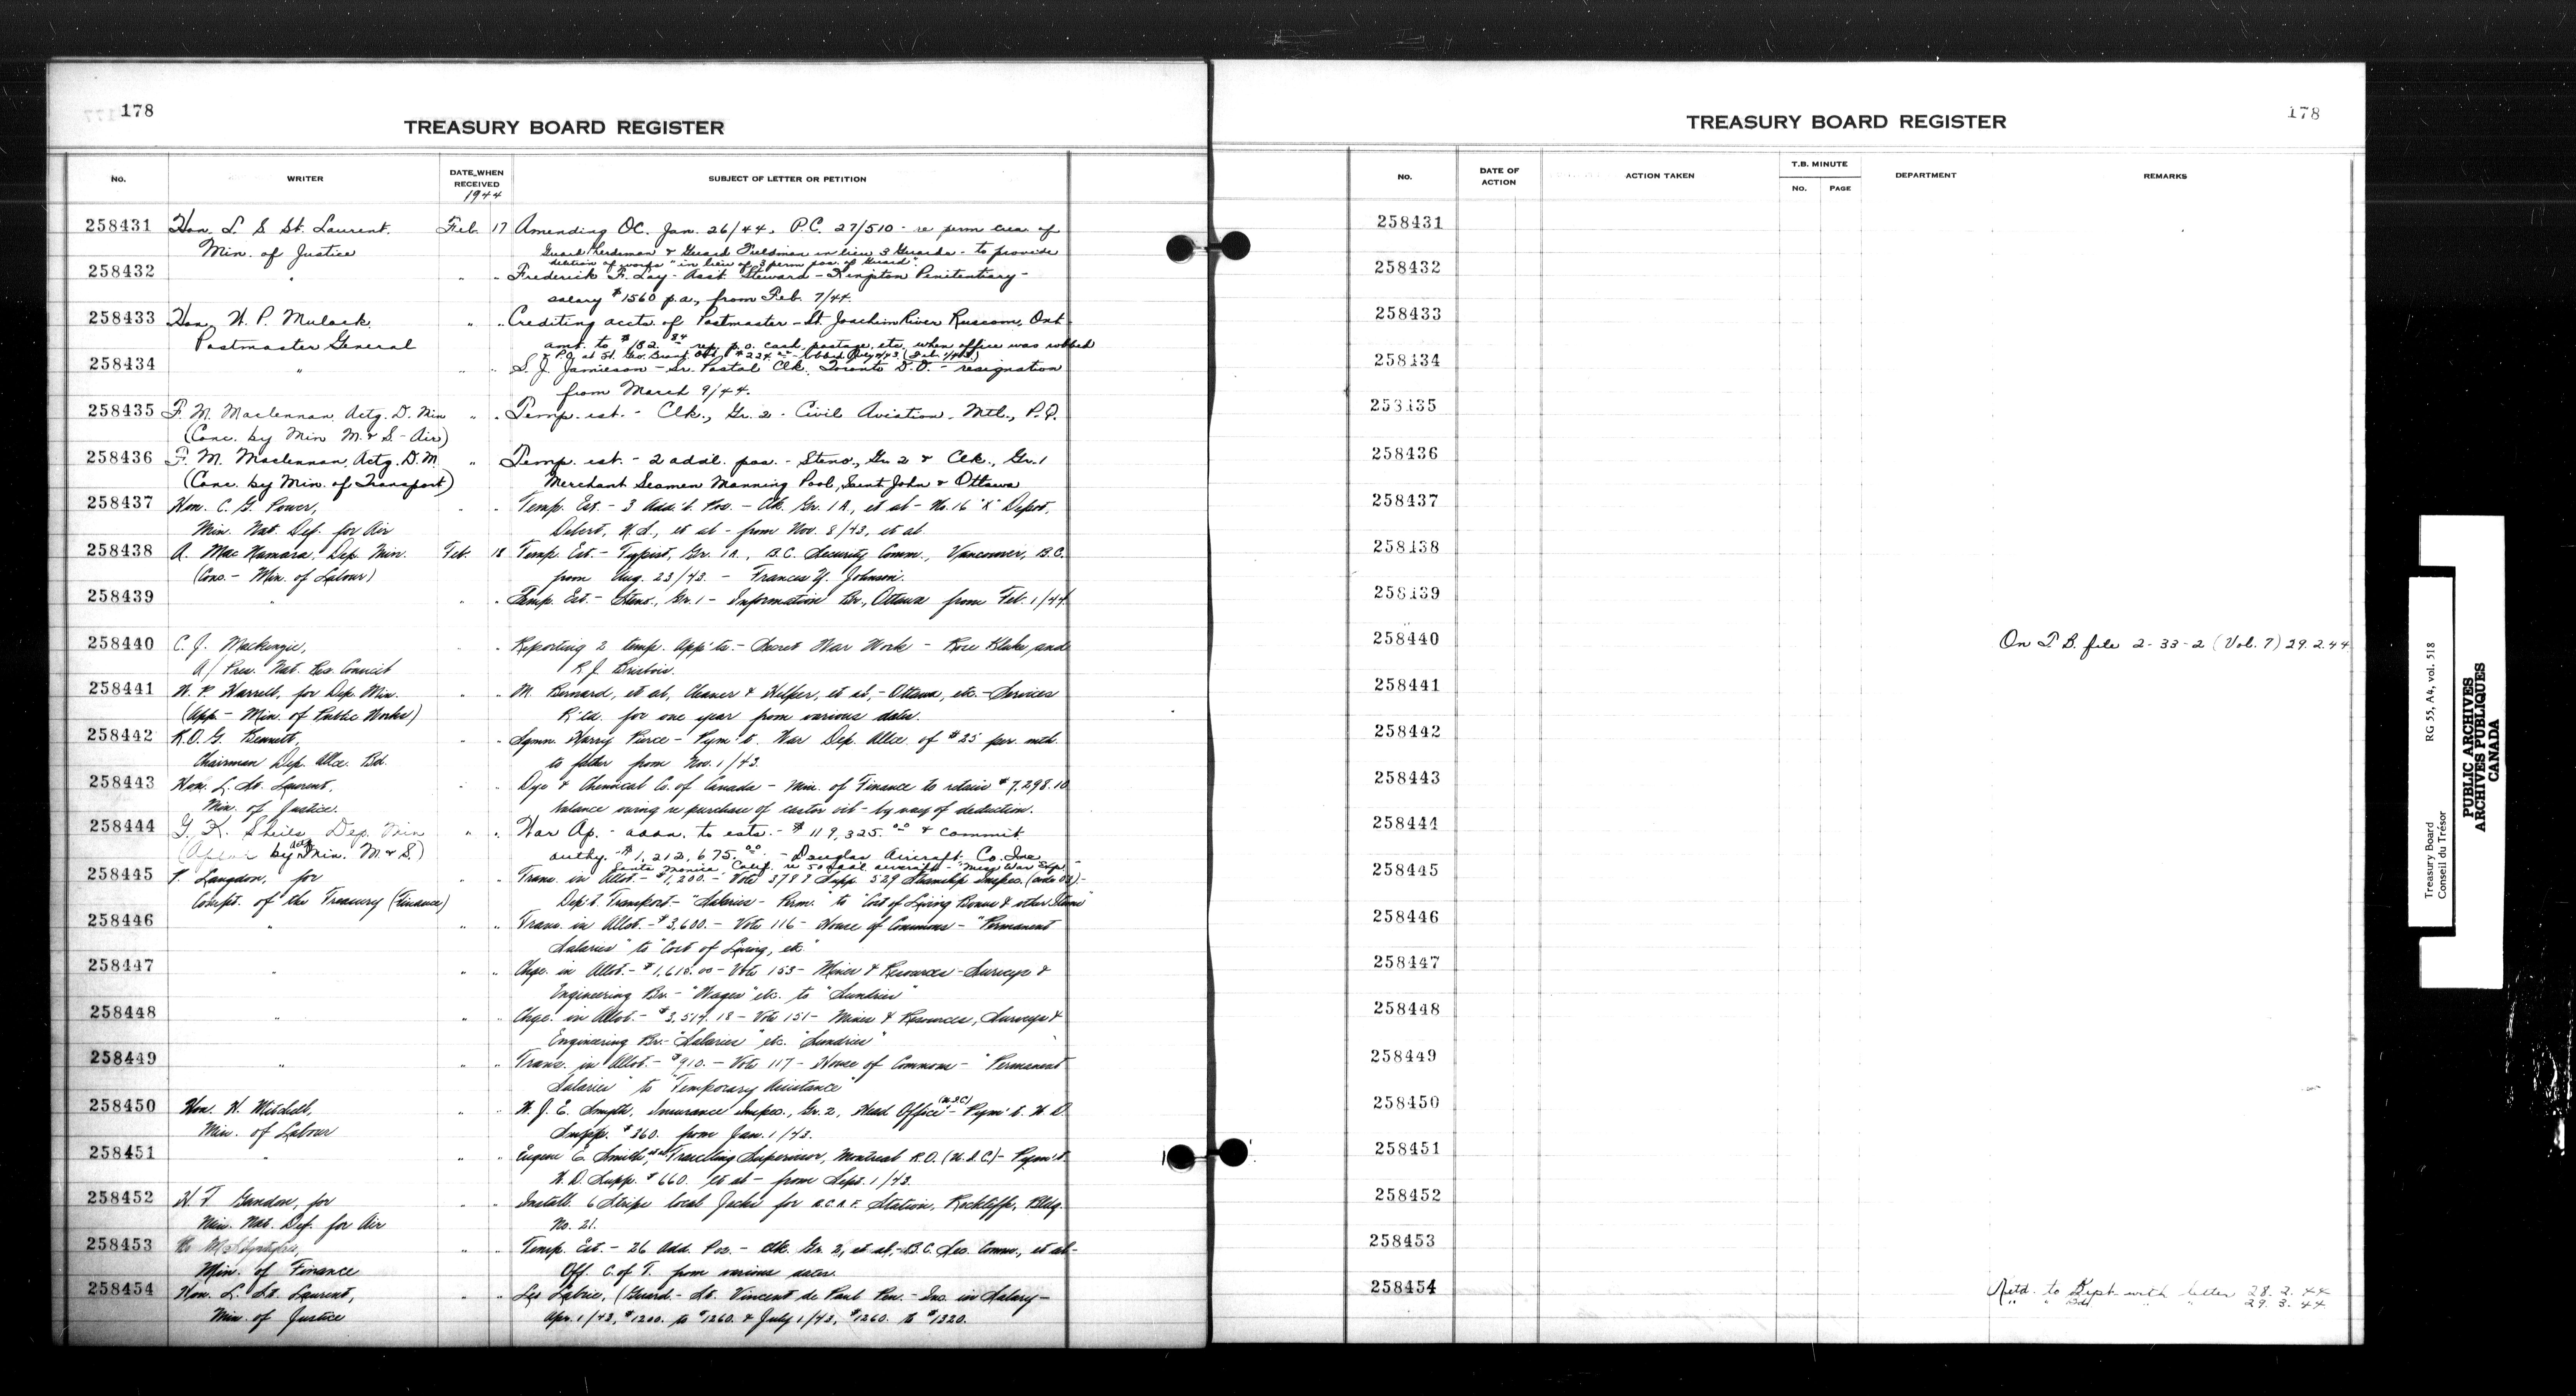 178
TREASURY BOARD REGISTER
NO. WRITER DATE WHEN RECEIVED SUBJECT OF LETTER OR PETITION
1944
258431 Hon. L. S. St. Laurent. Feb. 17 Amending OC. Jan. 26/44, P.C. 27/510 - re perm crea. of
Min. of Justice Guard Herdsman & Guard Fieldman in lieu 3 Guards - to provide
deletion of words "in lieu of 3 perm pos. of Guard".
258432 " " " Frederick F. Day - Asst. Steward - Kingston Penitentiary -
salary $1560 p.a., from Feb. 7/44.
258433 Hon. W. P. Mulock " " Crediting accts. of Postmaster - St. Joachim River Ruscom, Ont
Postmaster General amt. to $182.84 rep. p.o. cash, postage, etc. when office was robbed
& P.O. at St. Geo. Brant, Ont.
258434 " " " S. J. Jamieson - Sr. Postal Clk. Toronto D.O. - resignation
from March 9/44.
258435 F. M. Maclennan, Actg. D. Min " " Temp. est. - Clk., Gr. 2 - Civil Aviation - Mtl., P.Q.
(Conc. by Min M. & S. - Air)
258436 F. M. Maclennan, Actg. D.M. " Temp. est. - 2 addl. pos. - Steno., Gr. 2 & Clk., Gr. 1
(Conc. by Min. of Transport) Merchant Seamen Manning Pool, Saint John & Ottawa
258437 Hon. C. G. Power, " " Temp. Est. - 3 Add'l. Pos. - Clk. Gr. 1A, et al - No. 16 "X" Depot,
Min. Nat. Def. for Air Debert, N.S., et al - from Nov. 8/43, et al.
258438 A. MacNamara, Dep. Min. Feb. 18 Temp. Est. - Typist, Gr. 1A., B.C. Security Comm., Vancouver, B.C.
(Conc. - Min. of Labour) from Aug. 23/43. - Frances Y. Johnson.
258439 " " " Temp. Est. - Steno., Gr. 1 - Information Br., Ottawa from Feb. 1/44.
258440 C. J. Mackenzie, " " Reporting 2 temp. App'ts. - Secret War Work - Rose Blake and
A/Pres. Nat. Res. Council R. J. Brisbois.
258441 W. P. Harrell, for Dep. Min. " " M. Bernard, et al, Cleaner & Helper, et al, - Ottawa, etc. - Services
(App. - Min. of Public Works) R'td. for one year from various dates.
258442 R.O.G. Bennett, " " Sgmn. Harry Pierce - Pym't. War Dep. Allce. of $25 per. mth.
Chairman Dep. Allce. Bd. to father from Nov. 1/43.
258443 Hon. L. St. Laurent, " " Dye & Chemical Co. of Canada - Min. of Finance to retain $7,298.10
Min. of Justice. balance owing re purchase of castor oil - by way of deduction.
258444 G. K. Sheils, Dep. Min " " War Ap. - assn. to ests. - $119,325.00 & commit.
by actg Min. M & S.) authy. $1,212,675.00 - Douglas Aircraft Co. Inc.
Santa Monica, Calif. re
258445 P. Langdon, for Trans. in Allot. - $1,200. - Vote 378 & Supp. 529 Steamship Inspec.
Compt. of the Treasury (Finance) Dep't. Transport - "Salaries - Perm." to "Cost of Living Bonus & other Items"
258446 " " " Trans. in Allot. - $3,600. - Vote 116 - House of Commons - "Permanent
Salaries" to "Cost of Living, etc."
258447 " " " Chge. in Allot. - $1,615.00 - Vote 153 - Mines & Resources - Surveys &
Engineering Br. - "Wages" etc. to "Sundries"
258448 " " " Chge. in Allot. - $3,514.18 - Vote 151 - Mines & Resources, Surveys &
Engineering Br. - "Salaries" etc. "Sundries"
258449 " " " Trans. in Allot. - $910. - Vote 117 - House of Commons - "Permanent
Salaries" to "Temporary Assistance"
258450 Hon. H. Mitchell, " " W. J. E. Smyth, Insurance Inspec., Gr. 2, Head Office (U.I.C.) - Pym't. W. D.
Min. of Labour Supp. $360. from Jan. 1/43.
258451 " " " Eugene E. Smith, et al, Travelling Supervisor, Montreal R.O. (U.I.C.) - Pym't.
W. D. Supp. $660. et al - from Sept. 1/43.
258452 H. F. Gandon, for " " Install. 6 Stripe local Jacks for R.C.A.F. Station, Rockliffe, Bldg.
Min. Nat. Def. for Air No. 21.
258453 " " Temp. Est. - 26 Add. Pos. - Clk. Gr. 2, et al, - B.C. Sec. Comm., et al -
Min. of Finance Off. C. of T. from various dates.
258454 Hon. L. St. Laurent, " " Leo Labrie, (Guard - St. Vincent de Paul Pen. - Inc. in Salary -
Min. of Justice Apr. 1/43, $1200. to $1260. & July 1/43, $1260. to $1320.
TREASURY BOARD REGISTER
178
NO. DATE OF ACTION ACTION TAKEN T.B. MINUTE NO. PAGE DEPARTMENT REMARKS
258431
258432
258433
258434
258435
258436
258437
258438
258439
258440 On T.B. file 2-33-2 (Vol. 7) 29.2.44
258441
258442
258443
258444
258445
258446
258447
258448
258449
258450
258451
258452
258453
258454 Retd. to Dept. with letter 28.2.44
29.3.44
Treasury Board RG 55, A4, vol. 518
Conseil du Trésor
PUBLIC ARCHIVES
ARCHIVES PUBLIQUES
CANADA